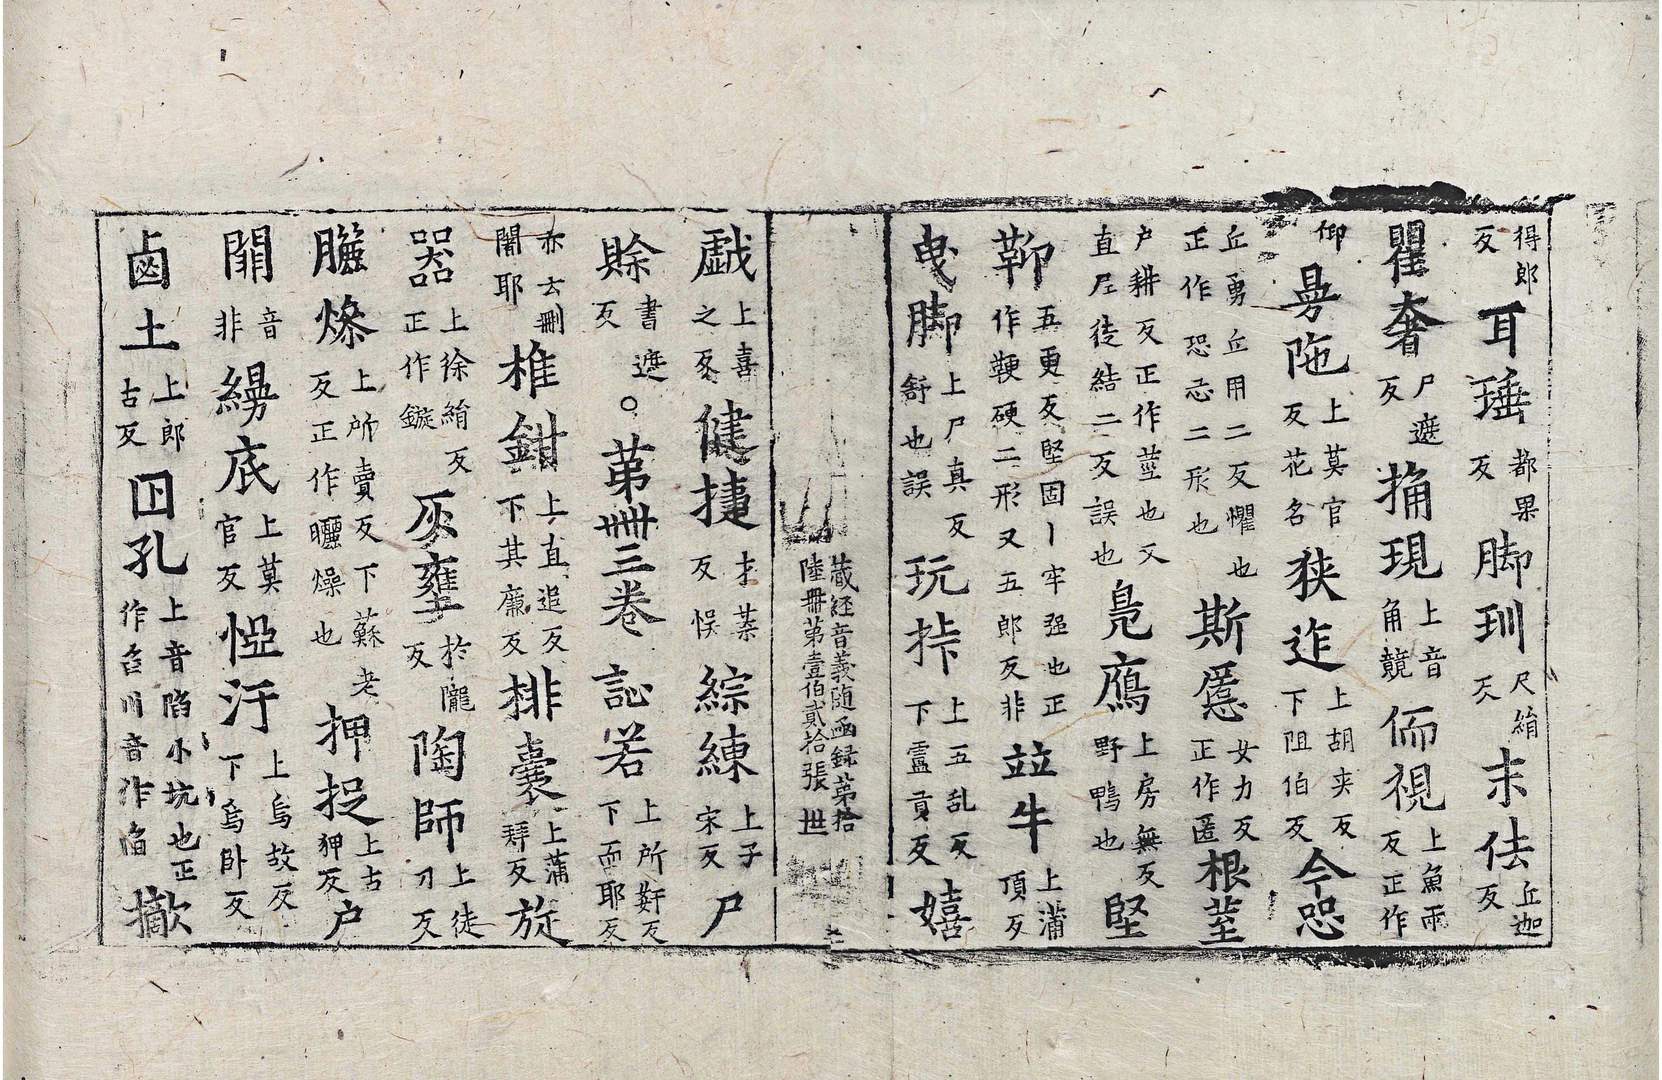 得郎反耳𤦹都果反脚玔尺絹反末佉丘迦反
瞿奢尸遮反捔現上音角競侕視上魚雨反正作
仰㝃陁上莫官反花名狹迮上胡夹反下阻伯反今㤟
丘勇丘用二反懼也正作恐忐二形也斯慝女力反正作匿根莖
户耕反正作莖也又直尼徒結二反誤也鳧鴈上房無反野鴨也堅
鞕五更反堅固丨牢强也正作鞕硬二形又五郎反非並牛上蒲頂反
曳脚上尸真反舒也誤玩挊上五乱反下靈貢反嬉
藏経音義随函録第拾
陸冊第壹伯貳拾張 世
戱上喜之反健捷才葉反悮綜練上子宋反尸
賖書遮反。第卌三卷訕若上所奸反下而耶反
亦云刪闍耶椎鉗上直追反下其廉反排囊上蒲拜反旋
器上徐絹反正作鏇灰壅於隴反陶師上徒刀反
臞㷮上所賣反下蘇老反正作曬燥也押捉上古狎反户
關音非縵底上莫官反惡汙上烏故反下烏卧反
鹵土上郎古反囙孔上音陷小坑也正作臽川音作陷撖